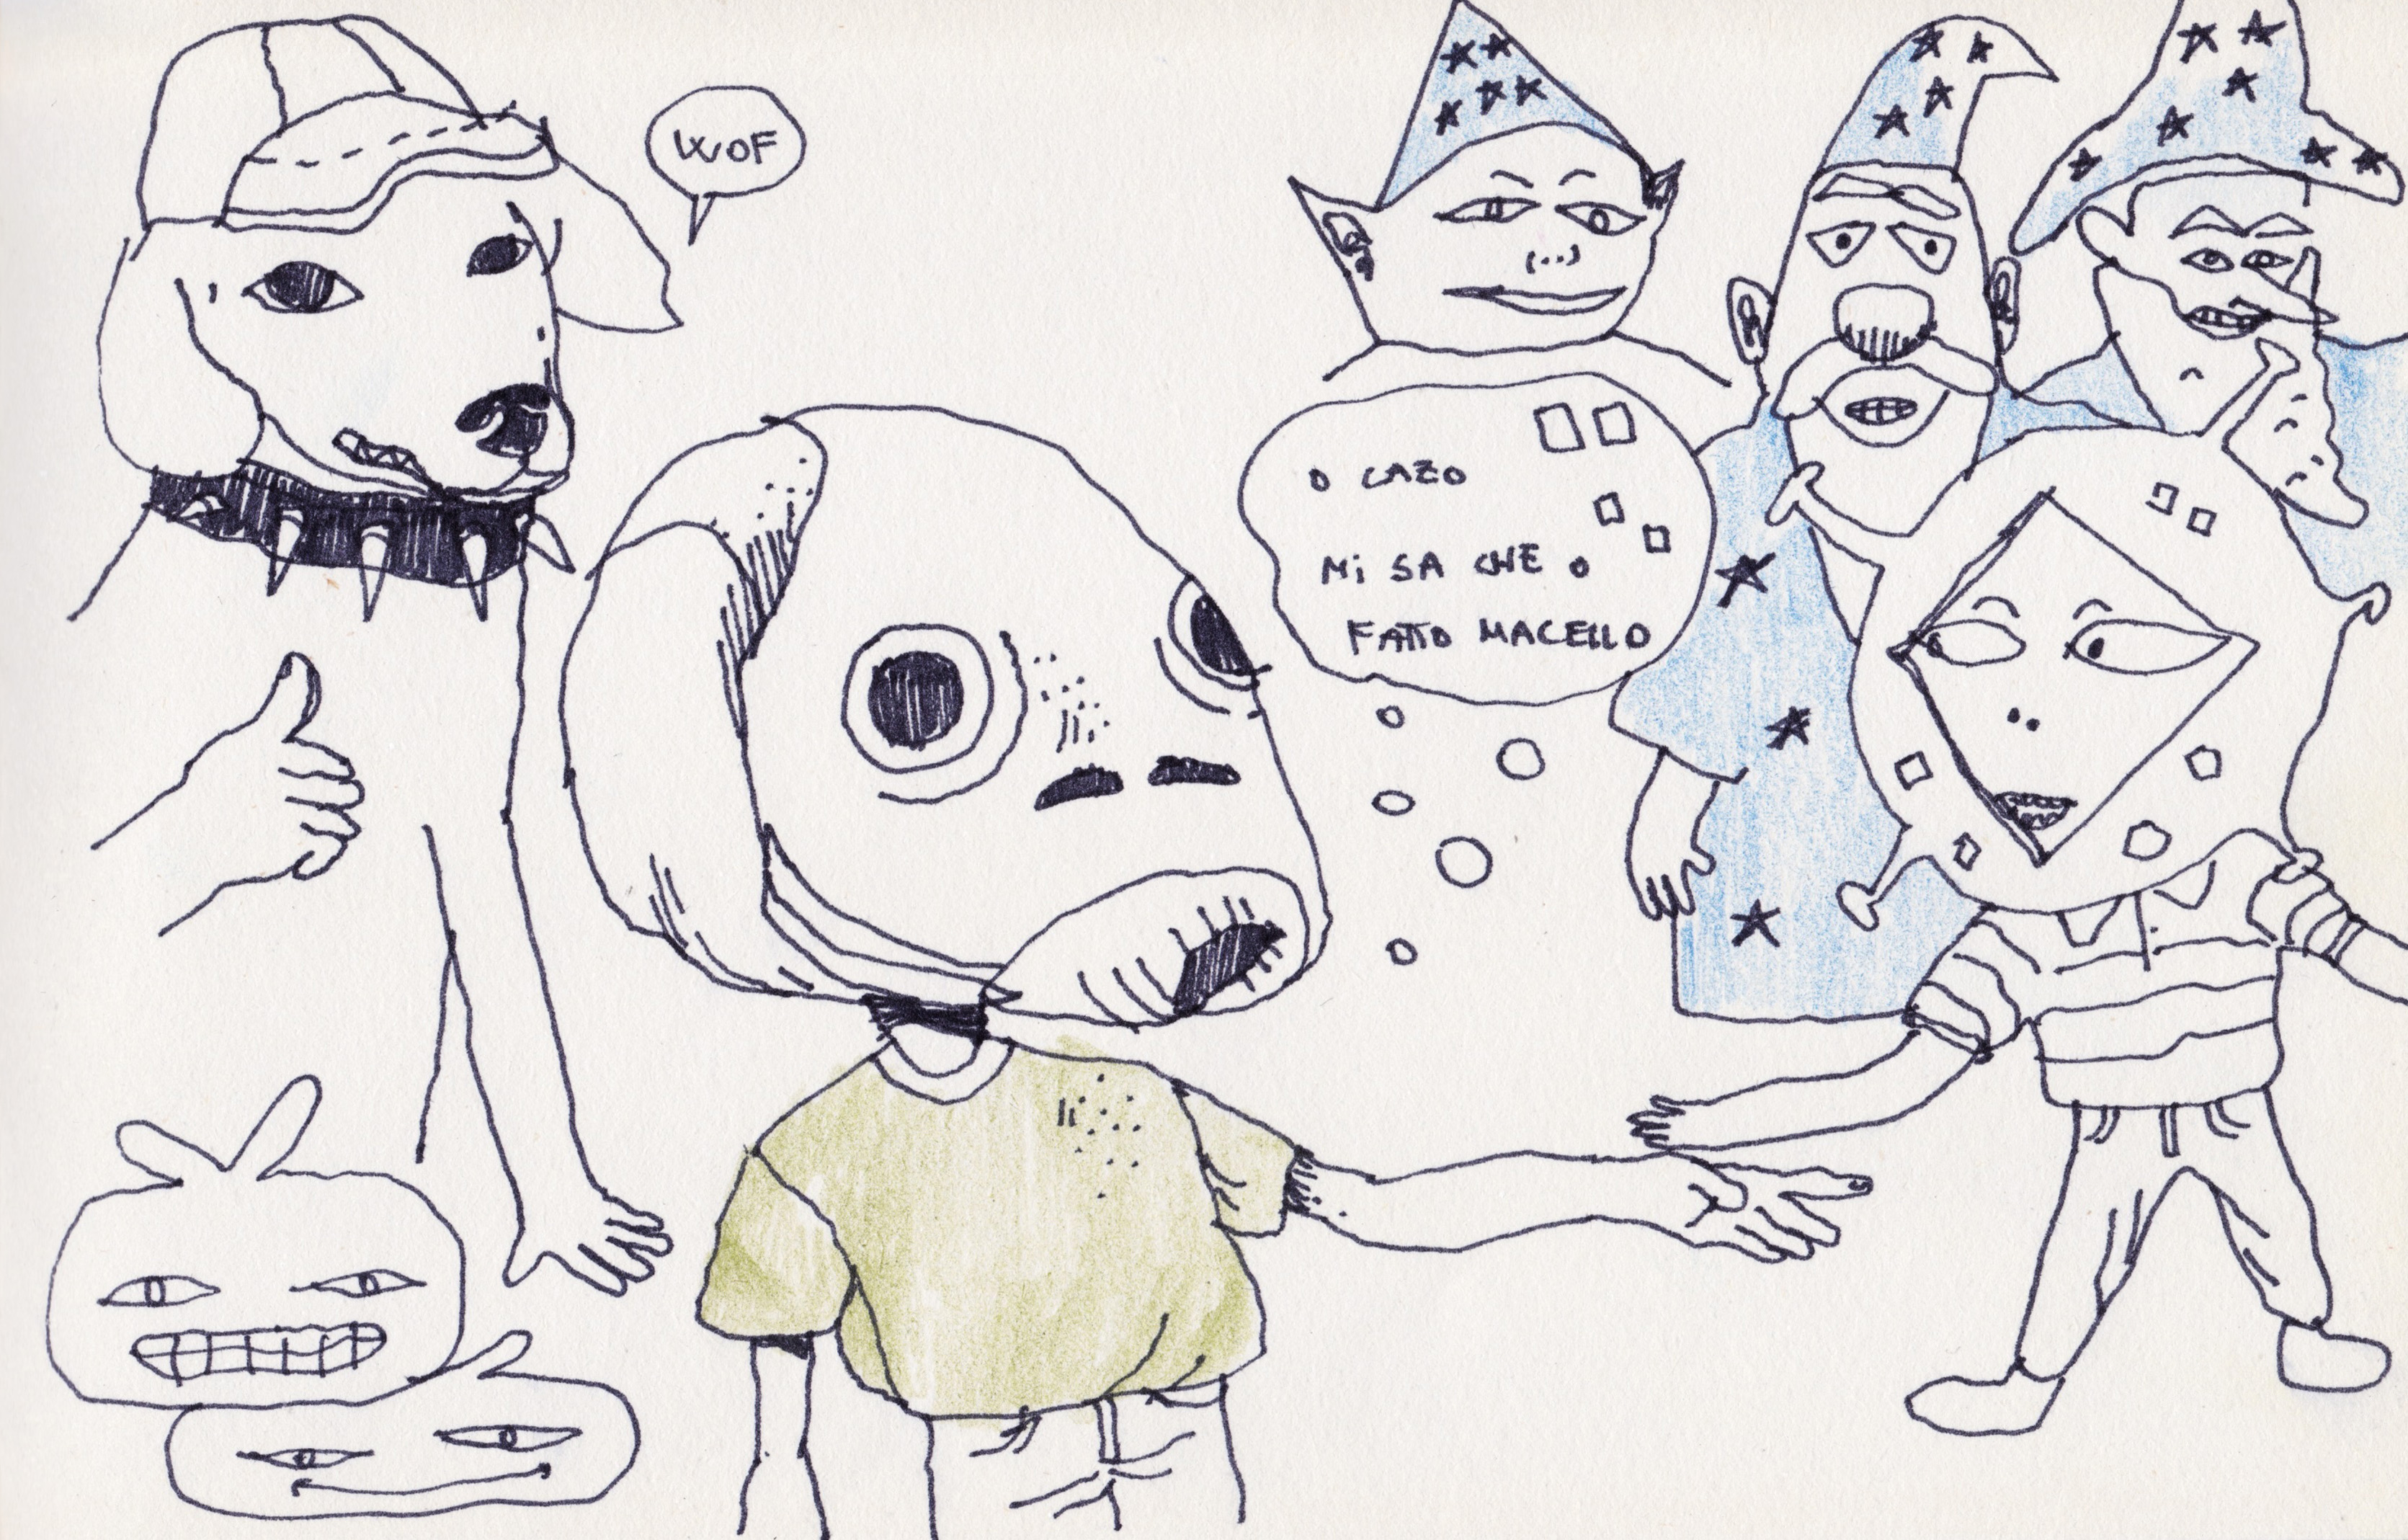 WOF
O CAZO
MI SA CHE O
FATTO MACELLO